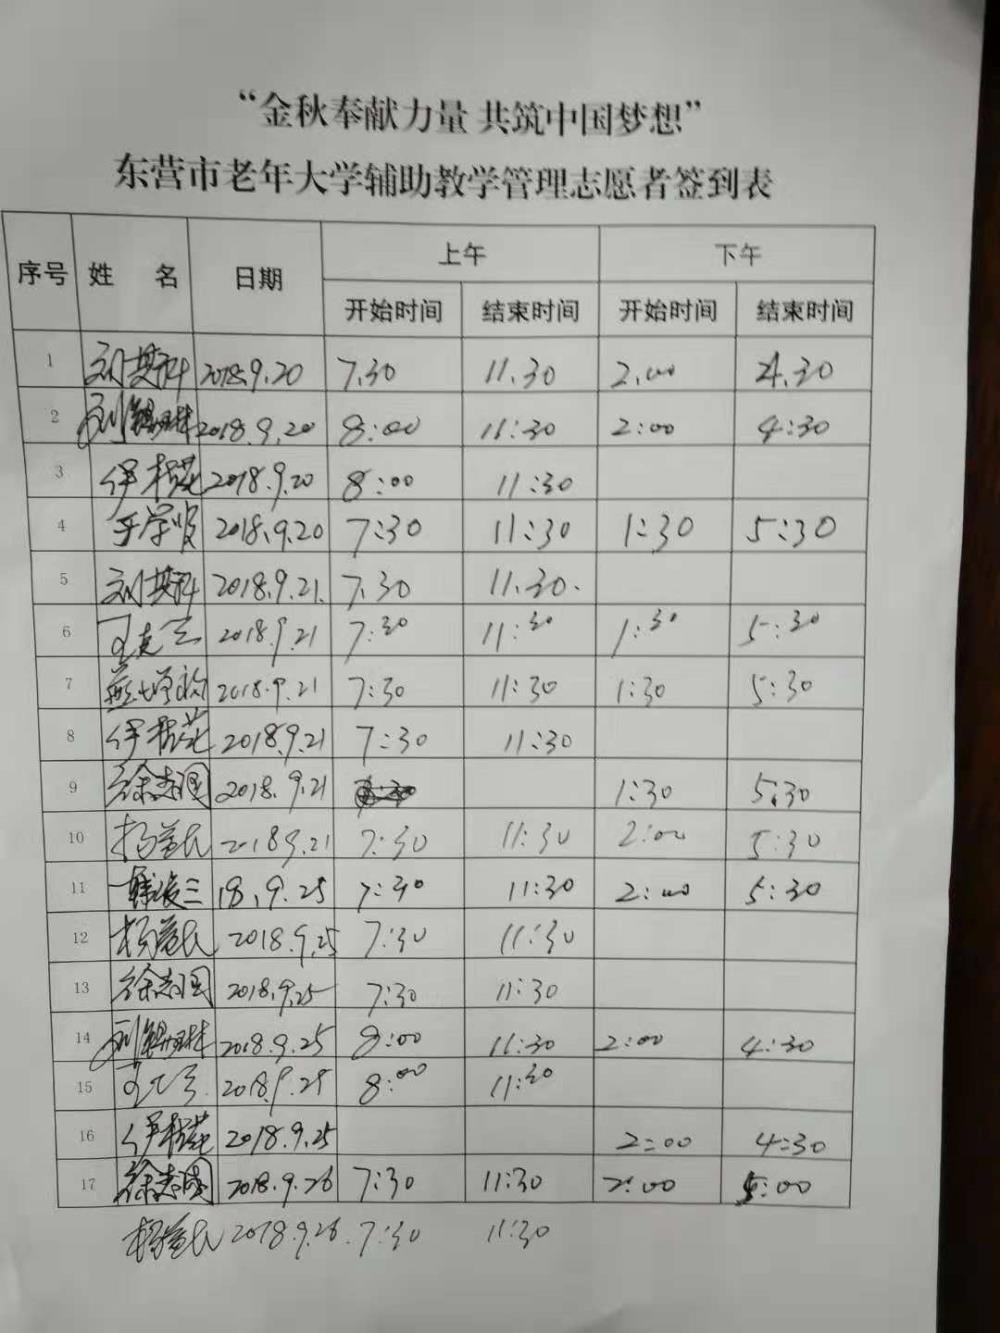 “金秋奉献力量 共筑中国梦想”
东营市老年大学辅助教学管理志愿者签到表
序号 姓 名 日期 上午 下午
开始时间 结束时间 开始时间 结束时间
1 刘其科 2018.9.20 7.30 11.30 2.00 4.30
2 2018.9.20 8:00 11:30 2:00 4:30
3 伊桂花 2018.9.20 8:00 11:30
4 2018.9.20 7:30 11:30 1:30 5:30
5 刘其科 2018.9.21. 7.30 11.30.
6 2018.9.21 7:30 11:30 1:30 5:30
7 2018.9.21 7:30 11:30 1:30 5:30
8 伊桂花 2018.9.21 7:30 11:30
9 徐志国 2018.9.21 1:30 5:30
10 杨益民 2018 9.21 7:30 11:30 2:00 5:30
11 18.9.25 7:30 11:30 2:00 5:30
12 杨益民 2018.9.25 7:30 11:30
13 徐志国 2018.9.25 7:30 11:30
14 2018.9.25 8:00 11:30 2:00 4:30
15 2018.9.25 8:00 11:30
16 伊桂花 2018.9.25 2:00 4:30
17 徐志国 2018.9.26 7:30 11:30 2:00 5:00
杨益民 2018.9.26. 7:30 11:30